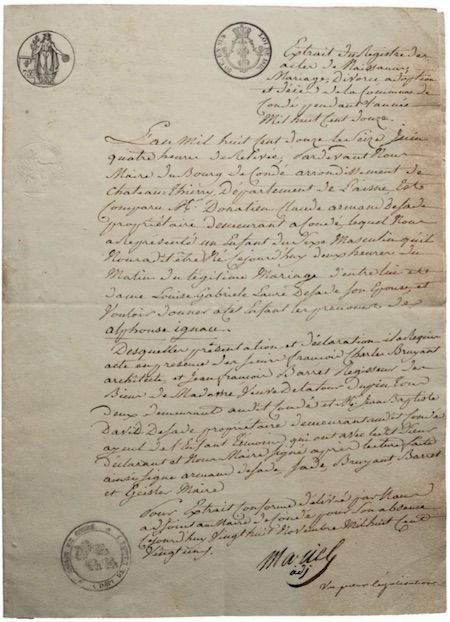 Extrait du Registre des
actes de Naissances,
Mariages, Divorce adoption
et décès de la Commune de
Condé pendant l'année
Mil huit Cent douze.
L'an Mil huit Cent douze le Seize Juin
quatre heures de Relevée, Pardevant Nous
Maire du Bourg de Condé arrondissement de
Chateau thierry, Département de L'aisne Est
Comparu Mr. Donatien Claude armand Desade
propriétaire demeurant a Condé, lequel Nous
a Représenté un Enfant du Sexe Masculin quil
Nous a dit être Né Cejourd'huy deux heures du
Matin du légitime Mariage d'entre lui et
dame Louise Gabriele Laure Desade Son Epouse, et
Vouloir donner a cet Enfant les prenoms de
alphonse ignace.
Desquelles présentation et déclaration il a Requis
acte en présence des Sieurs françois Charles Bruyant
architecte, et Jean françois Barret Regisseur des
Biens de Madame Veuve Delatour Dupin tous
Deux demeurant audit Condé et Mr. Jean Baptiste
David Desade propriétaire demeurant audit Condé
ayeul de l'Enfant qui ont avec le dit Sieur
déclarant et Nous Maire Signé après lecture faite
ainsi Signé armand desade, Sade, Bruyant, Barret
et Geisler Maire
Pour Extrait Conforme délivré par Nous
adjoint au Maire de Condé pour Son absence
Cejourd'huy Vingt huit Novembre Mil huit Cent
Vingt
adj
Vu pour légalisation